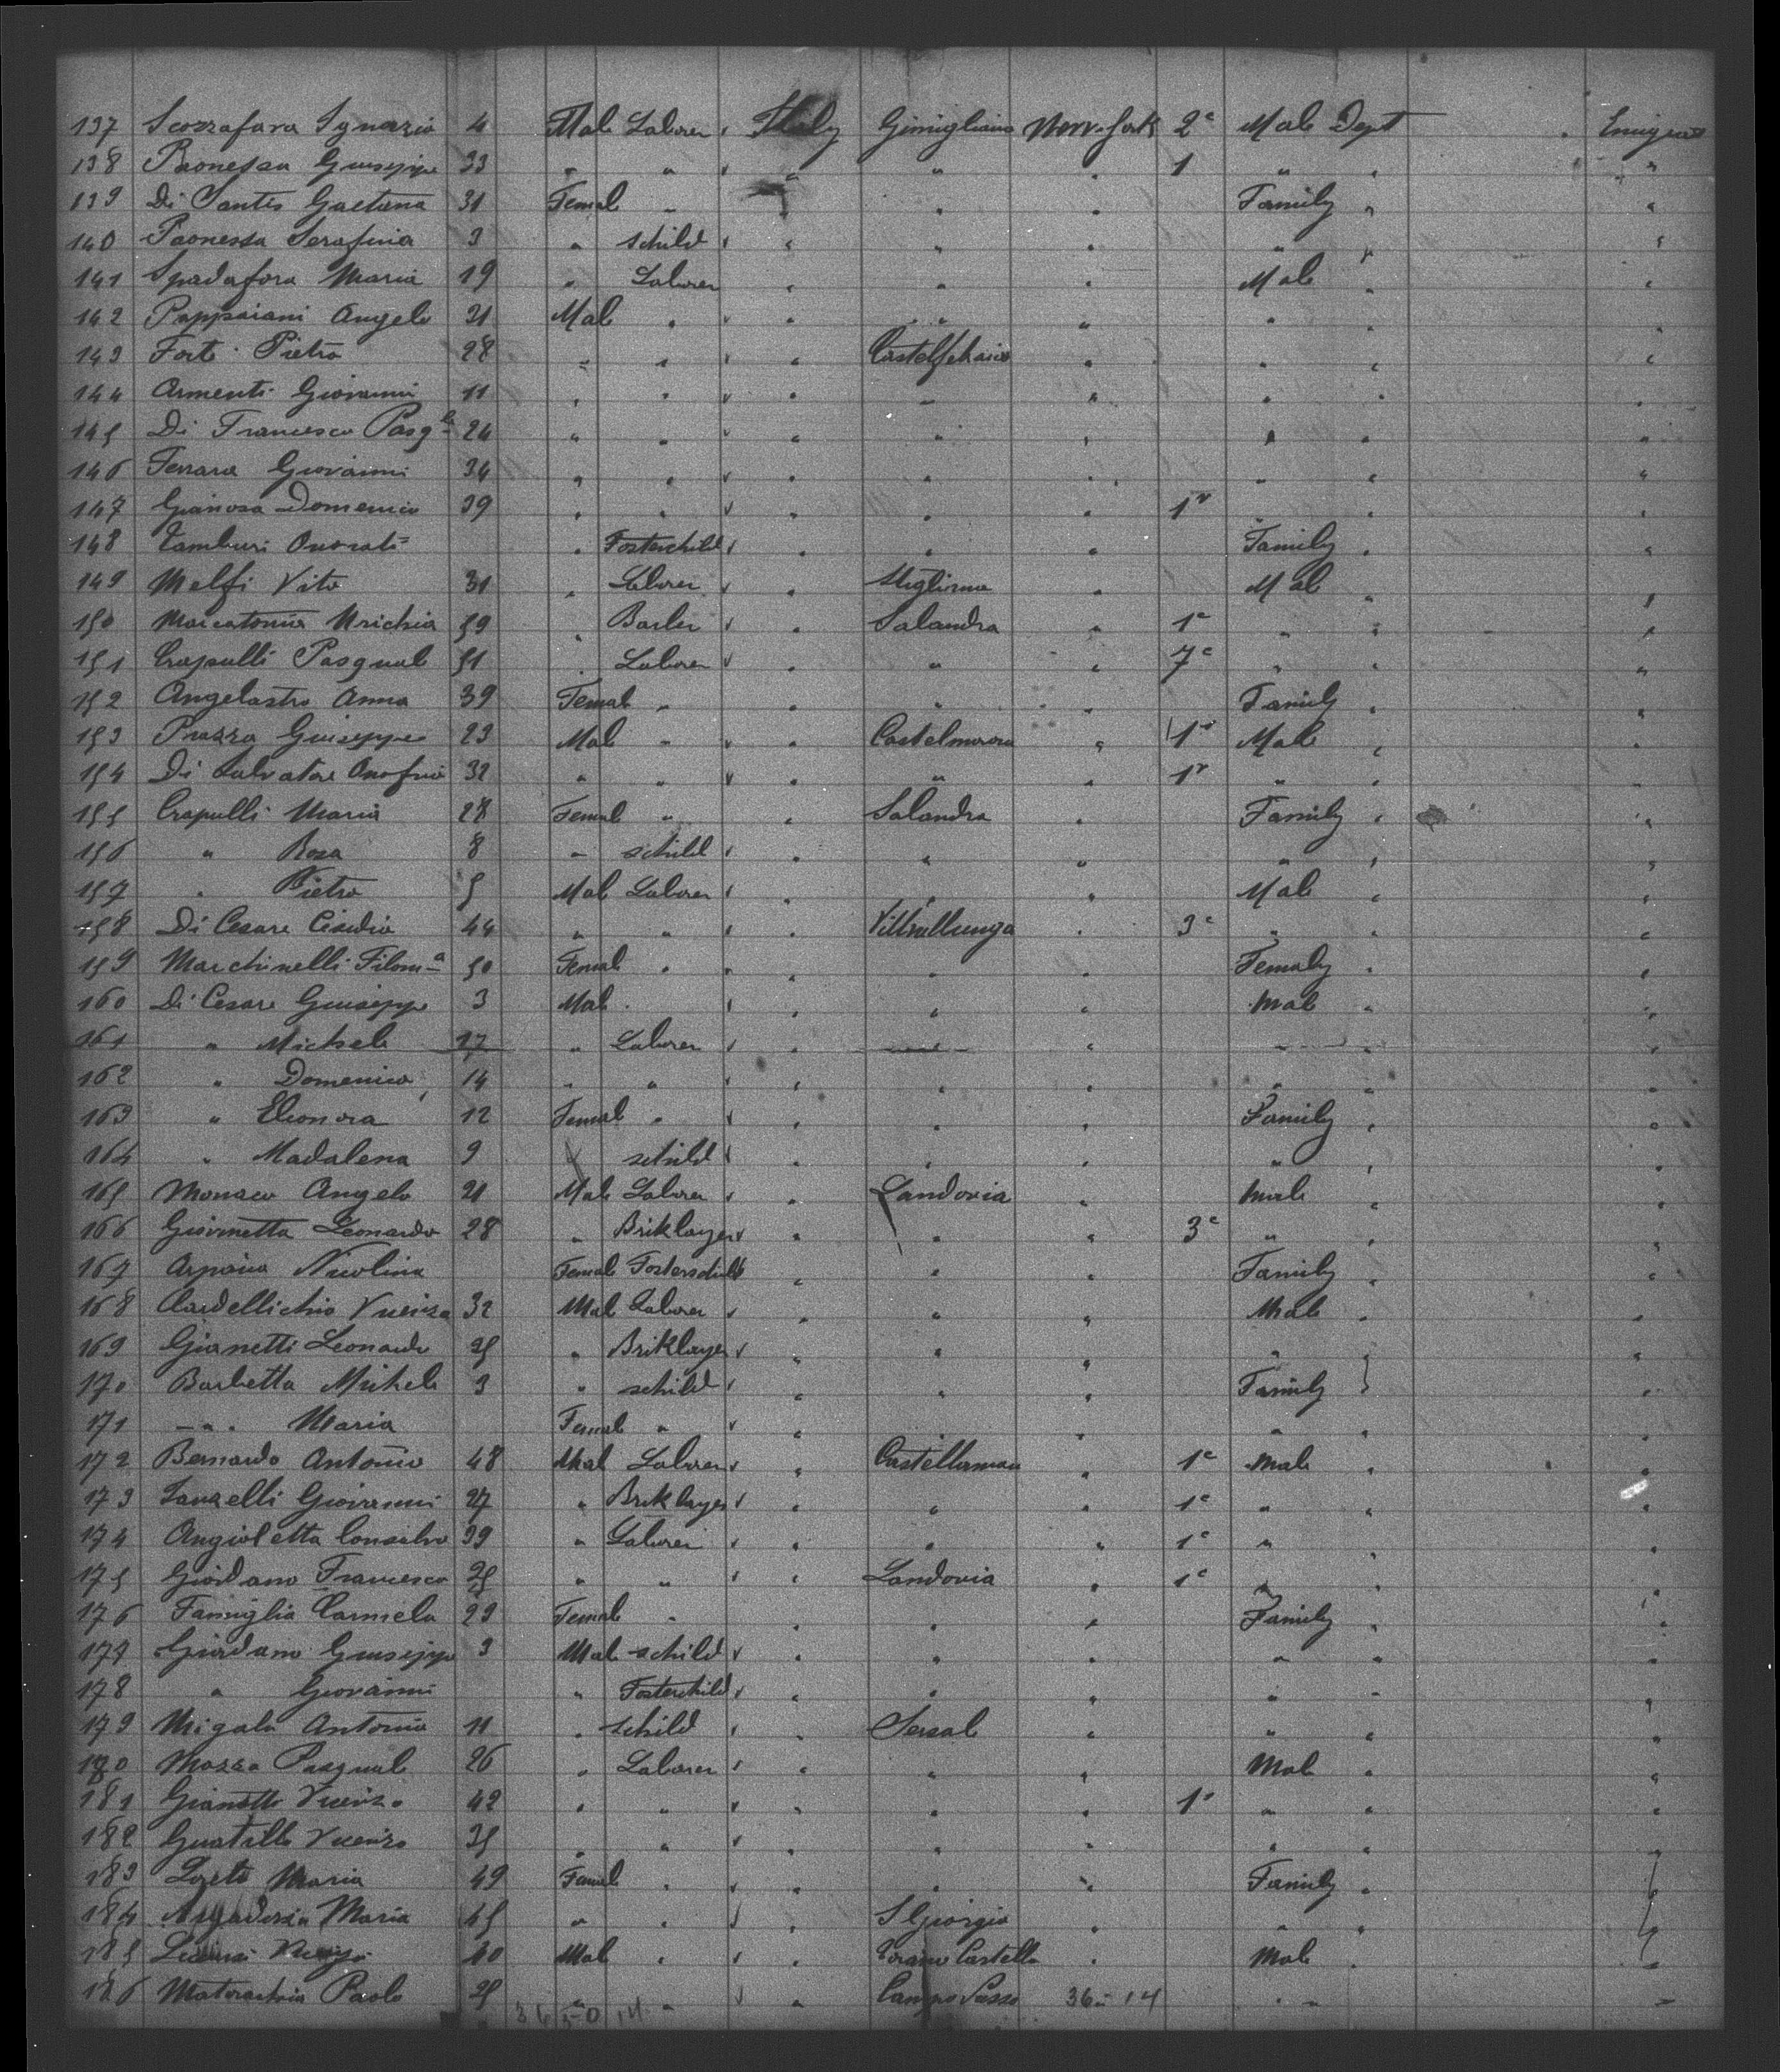 137 Scozzafava Ignazio 4 Male Laborer " Italy Gimigliano New-York 2c Male Dept Emigrat
138 Paonessa Giuseppe 33 " " " " " " 1 " " "
139 Di Santis Gaetana 31 Femal " " " " Family " "
140 Paonessa Serafina 3 " schild " " " " " " "
141 Spadafora Maria 19 " Laborer " " " Male " "
142 Pappaiani Angelo 31 Mal " " " " " " " "
143 Forte Pietro 28 " " " " " " " "
144 Armenti Giovanni 11 " " " " " " " " "
145 Di Francesco Pasqle 24 " " " " " " " " "
146 Ferrara Giovanni 34 " " " " " " " " "
147 Domenico 39 " " " " " " 1r " " "
148 Tamburi Onorati " Fosterchild " " " " Family " "
149 Melfi Vito 31 " Laborer " " Miglionico " Mal " "
150 59 " Barber " " Salandra " 1c " " "
151 Crapulli Pasquale 51 " Laborer " " " " 7c " " "
152 Angelastro Anna 39 Femal " " " " Family " "
153 Giuseppe 23 Mal " " " " 1r Male " "
154 Di Salvatore Onofrio 32 " " " " " " 1r " " "
155 Crapulli Maria 28 Femal " " Salandra " Family " "
156 " Rosa 8 " schild " " " " " " "
157 " Pietro 5 Mal Laborer " " " " Male " "
158 Di Cesare 44 " " " " " 3c " " "
159 Marchinelli Filoma 50 Femal " " " " " Femaly " "
160 Di Cesare Giuseppe 3 Mal " " " " " Mal " "
161 " Michele 17 " Laborer " " " " " " "
162 " Domenico 14 " " " " " " " " "
163 " Eleonora 12 Femal " " " " " Family " "
164 " Madalena 9 " schild " " " " " " "
165 Monaco Angelo 21 Male Laborer " " Landovia " Male " "
166 Leonardo 28 " Briklayer " " " " 3c " " "
167 Nicolina Femal Fosterschild " " " Family " "
168 Cardellichio 32 Mal Laborer " " " " Male " "
169 Gianetti Leonardo 25 " Briklayer " " " " " " "
170 Barbetta Michele 3 " schild " " " " Family " "
171 " Maria Femal " " " " " " " "
172 Bernardo Antonio 48 Mal Laborer " " " 1c Male " "
173 Giovanni 27 " Briklayer " " " " 1c " " "
174 Angioletta 39 " Laborer " " " " 1c " " "
175 Giordano Francesco 25 " " " " Landovia " 1c " " "
176 Famiglia Carmela 23 Femal " " " " Family " "
177 Giordano Giuseppe 3 Mal schild " " " " " " "
178 " Giovanni " Fosterchild " " " " " " "
179 Migala Antonio 11 " schild " " Sersale " " " "
180 Mazza Pasquale 26 " Laborer " " " " Male " "
181 42 " " " " " " 1c " " "
182 35 " " " " " " " " "
183 Loreto Maria 49 Femal " " " " " Family " "
184 Maria 45 " " " " S Giorgio " " " "
185 40 Mal " " " Torano Castello " Male " "
186 Paolo 25 " " " " Campo Basso 36-14 " " "
36 50 14